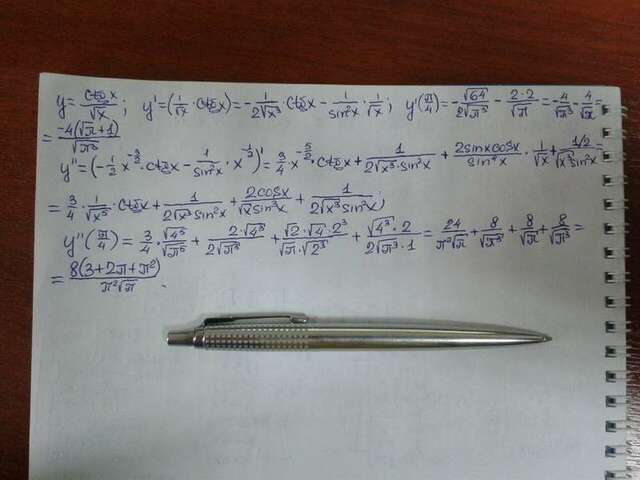 y = ctg x/√x; y' = (1/√x · ctg x)' = -1/(2√x³) · ctg x - 1/sin²x · 1/√x; y'(π/4) = -√64/(2√π³) - 2·2/√π = -4/√π³ - 4/√π =
= -4(√π+1)/√π³
y'' = (-1/2 x^(-3/2) · ctg x - 1/sin²x · x^(-1/2))' = 3/4 · x^(-5/2) · ctg x + 1/(2√x³ · sin²x) + 2 sin x cos x/sin⁴x · 1/√x + (1/2)/(√x³ sin²x) =
= 3/4 · 1/√x⁵ · ctg x + 1/(2√x³ sin²x) + 2cos x/(√x sin³x) + 1/(2√x³ sin²x);
y''(π/4) = 3/4 · √4⁵/√π⁵ + 2·√4³/(2√π³) + √2·√4·2³/(√π·√2³) + √4³·2/(2√π³·1) = 24/(π²√π) + 8/√π³ + 8/√π + 8/√π³ =
= 8(3+2π+π²)/(π²√π).